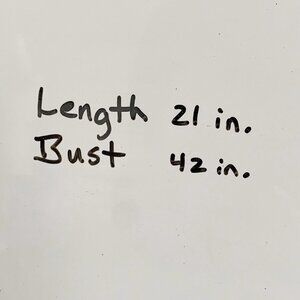 Length 21 in.
Bust 42 in.